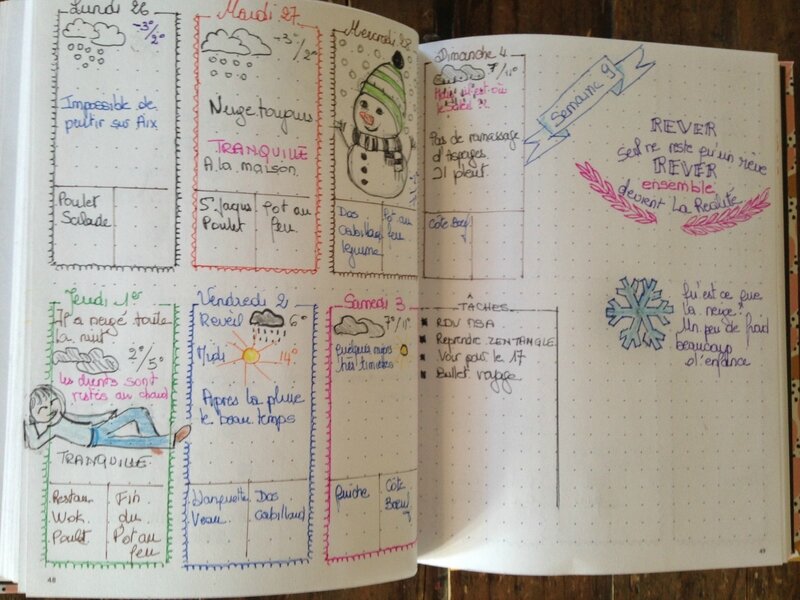 Lundi 26
-3°/2°
Impossible de
partir sur Aix
Poulet
Salade
Mardi 27
-3°/2°
Neige toujours
TRANQUILLE
A la maison
S. Jaques
Poulet
Pot au
feu
Mercredi 28
Dos
cabillaud
légume
Pot au
feu
Jeudi 1er
Il a neigé toute
la nuit
2°/5°
les clients sont
restés au chaud
TRANQUILLE
Restau
Wok
Poulet
Fin
du
Pot au
feu
Vendredi 2
Reveil
6°
Midi
14°
Après la pluie
le beau temps
blanquette
Veau
Dos
cabillaud
Samedi 3
7°/11°
Quelques rayons
très timides
Quiche
Côte
Boeuf
48
Dimanche 4
7°/11°
est où
le soleil ??
Pas de ramassage
d'asperges
Il pleut
Côte Boeuf
TÂCHES
RDV MSA
Reprendre ZENTANGLE
Voir pour le 17
Bullet voyage
Semaine 9
REVER
seul ne reste qu'un rêve
REVER
ensemble
devient La Realité
Qu'est ce que
la neige?
Un peu de froid
beaucoup
d'enfance
49